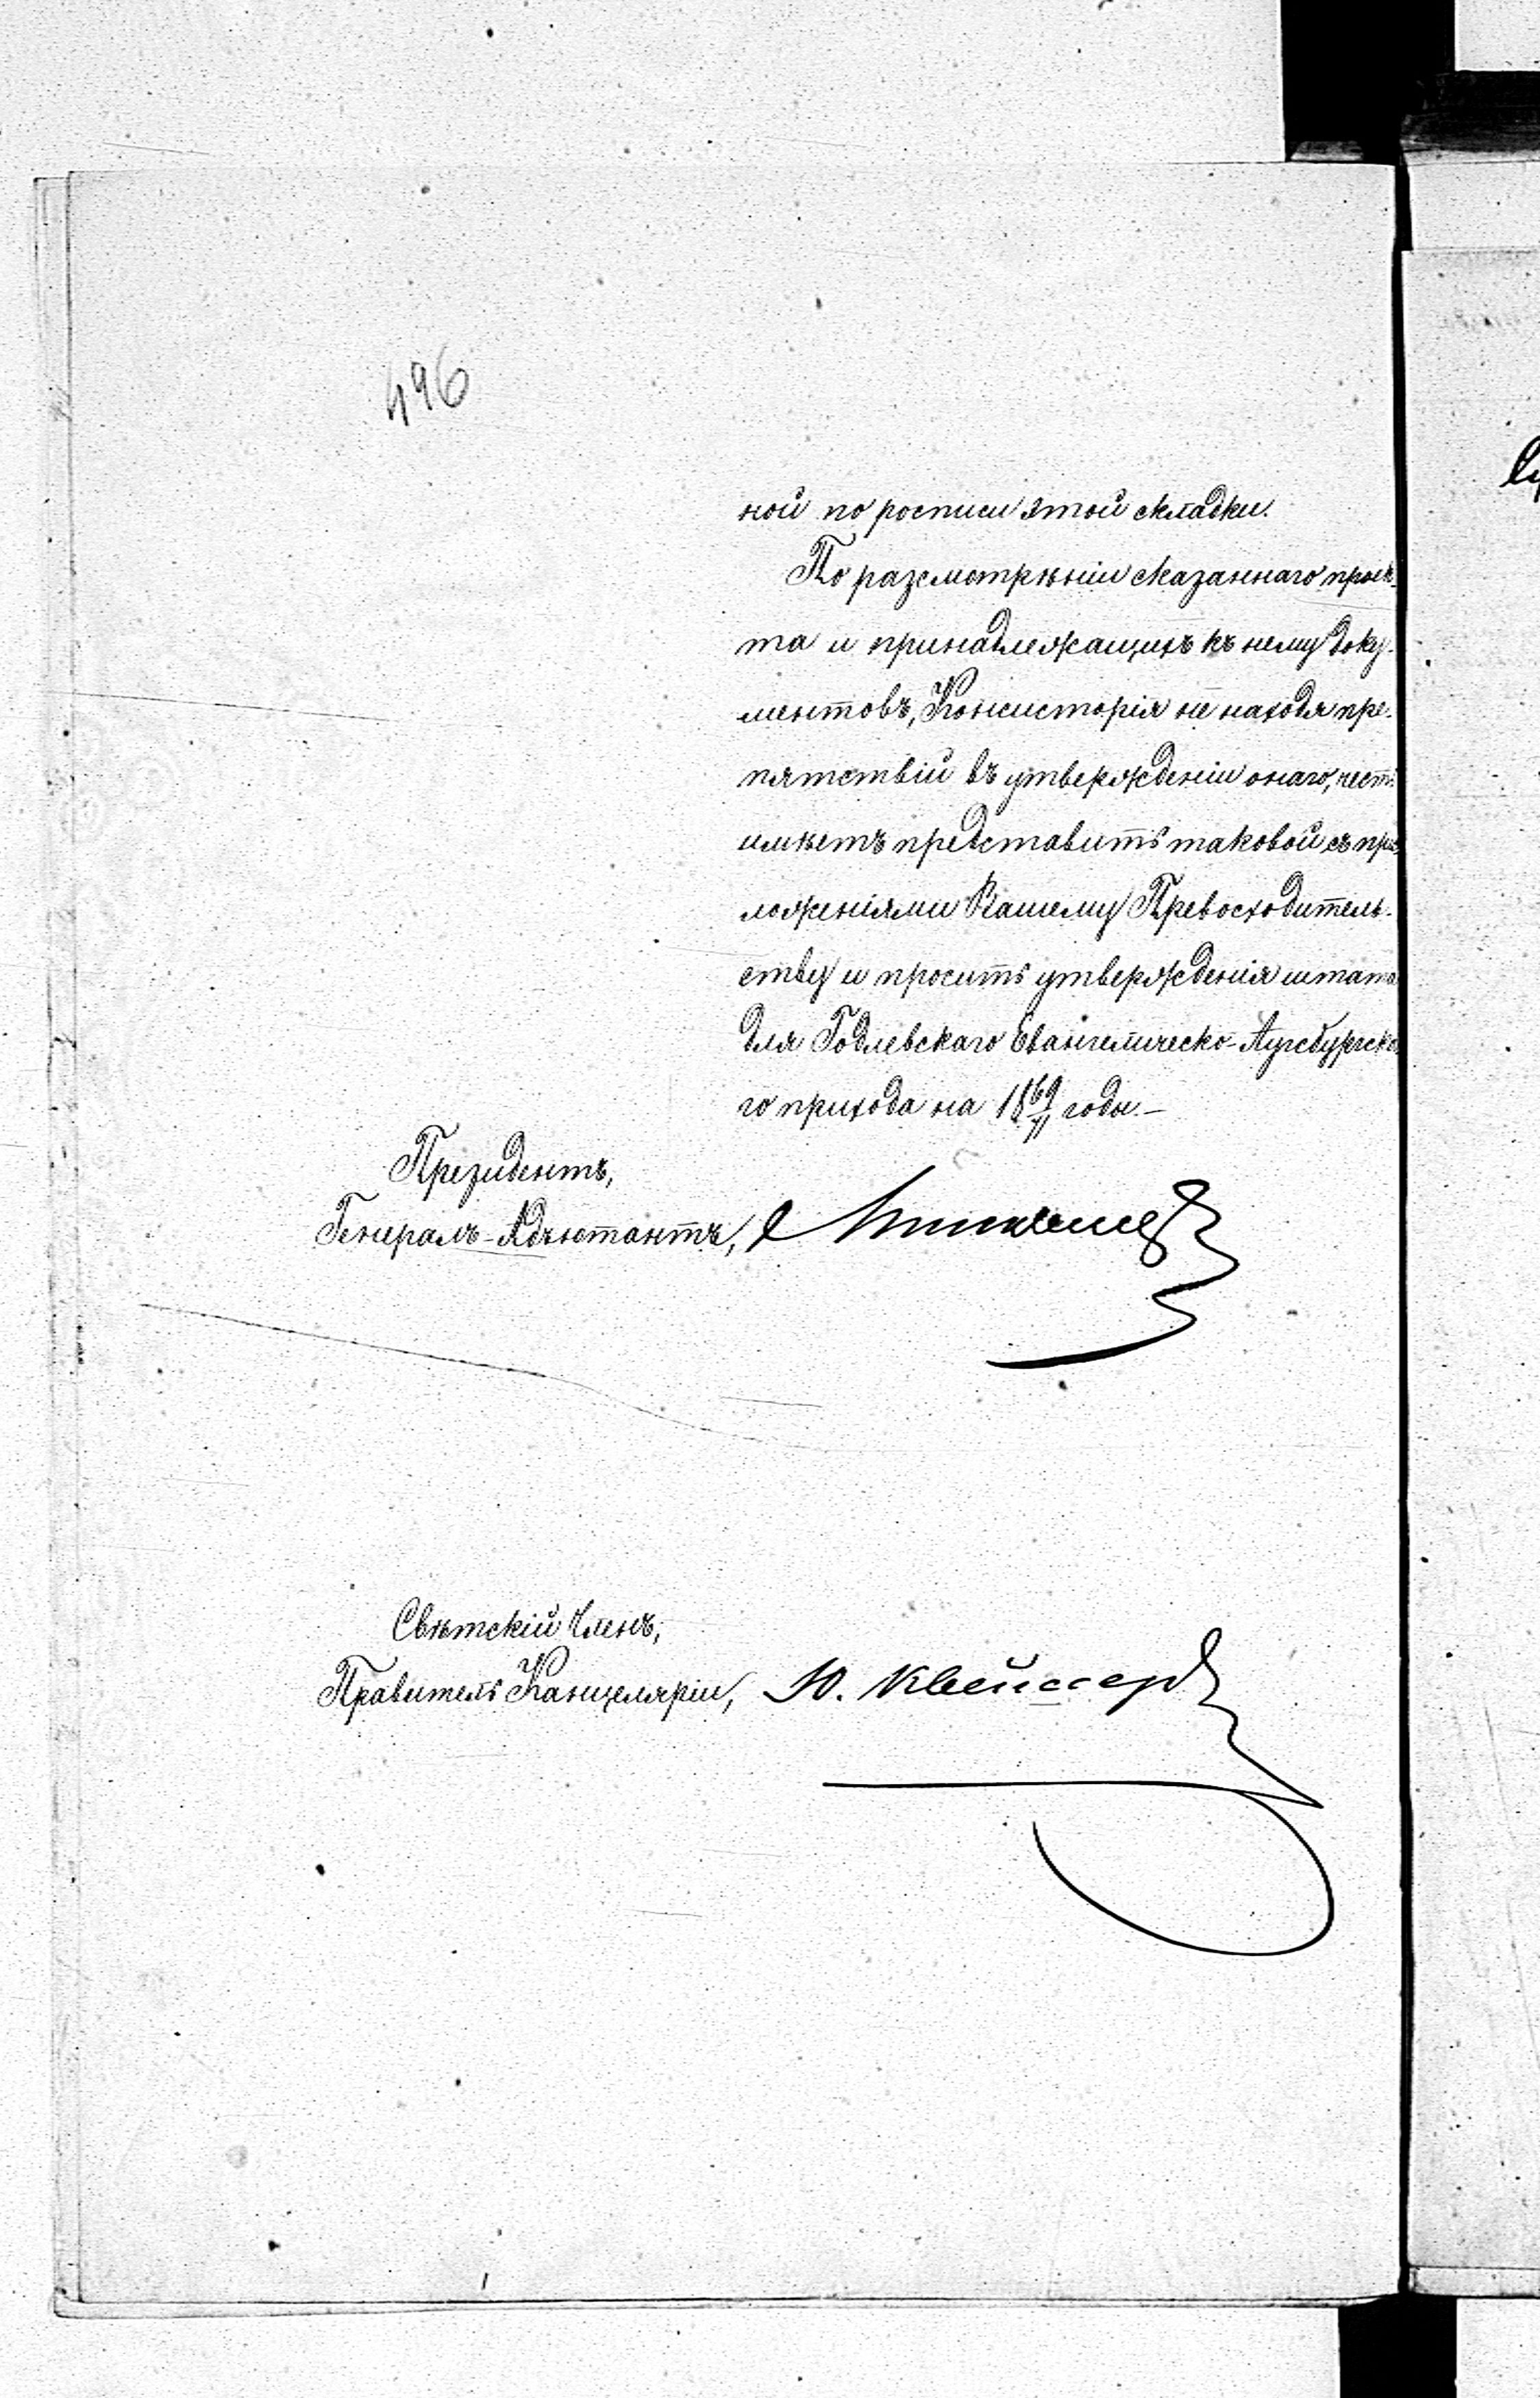 496
ной по росписи этой складки.
По разсмотрѣніи сказаннаго проек-
та и принадлежащихъ къ нему доку-
ментовъ, Консисторія не находя пре-
пятствій въ утвержденіи онаго, честь
имѣетъ представить таковой съ при-
ложеніями Вашему Превосходитель-
ству и просить утвержденія штата
для Годлевскаго Евангелическо-Аугсбургска-
го прихода на 1869/71 годы.-
Президентъ,
Генералъ-Адъютантъ,
Свѣтскій Членъ,
Правитель Канцеляріи, Ю.